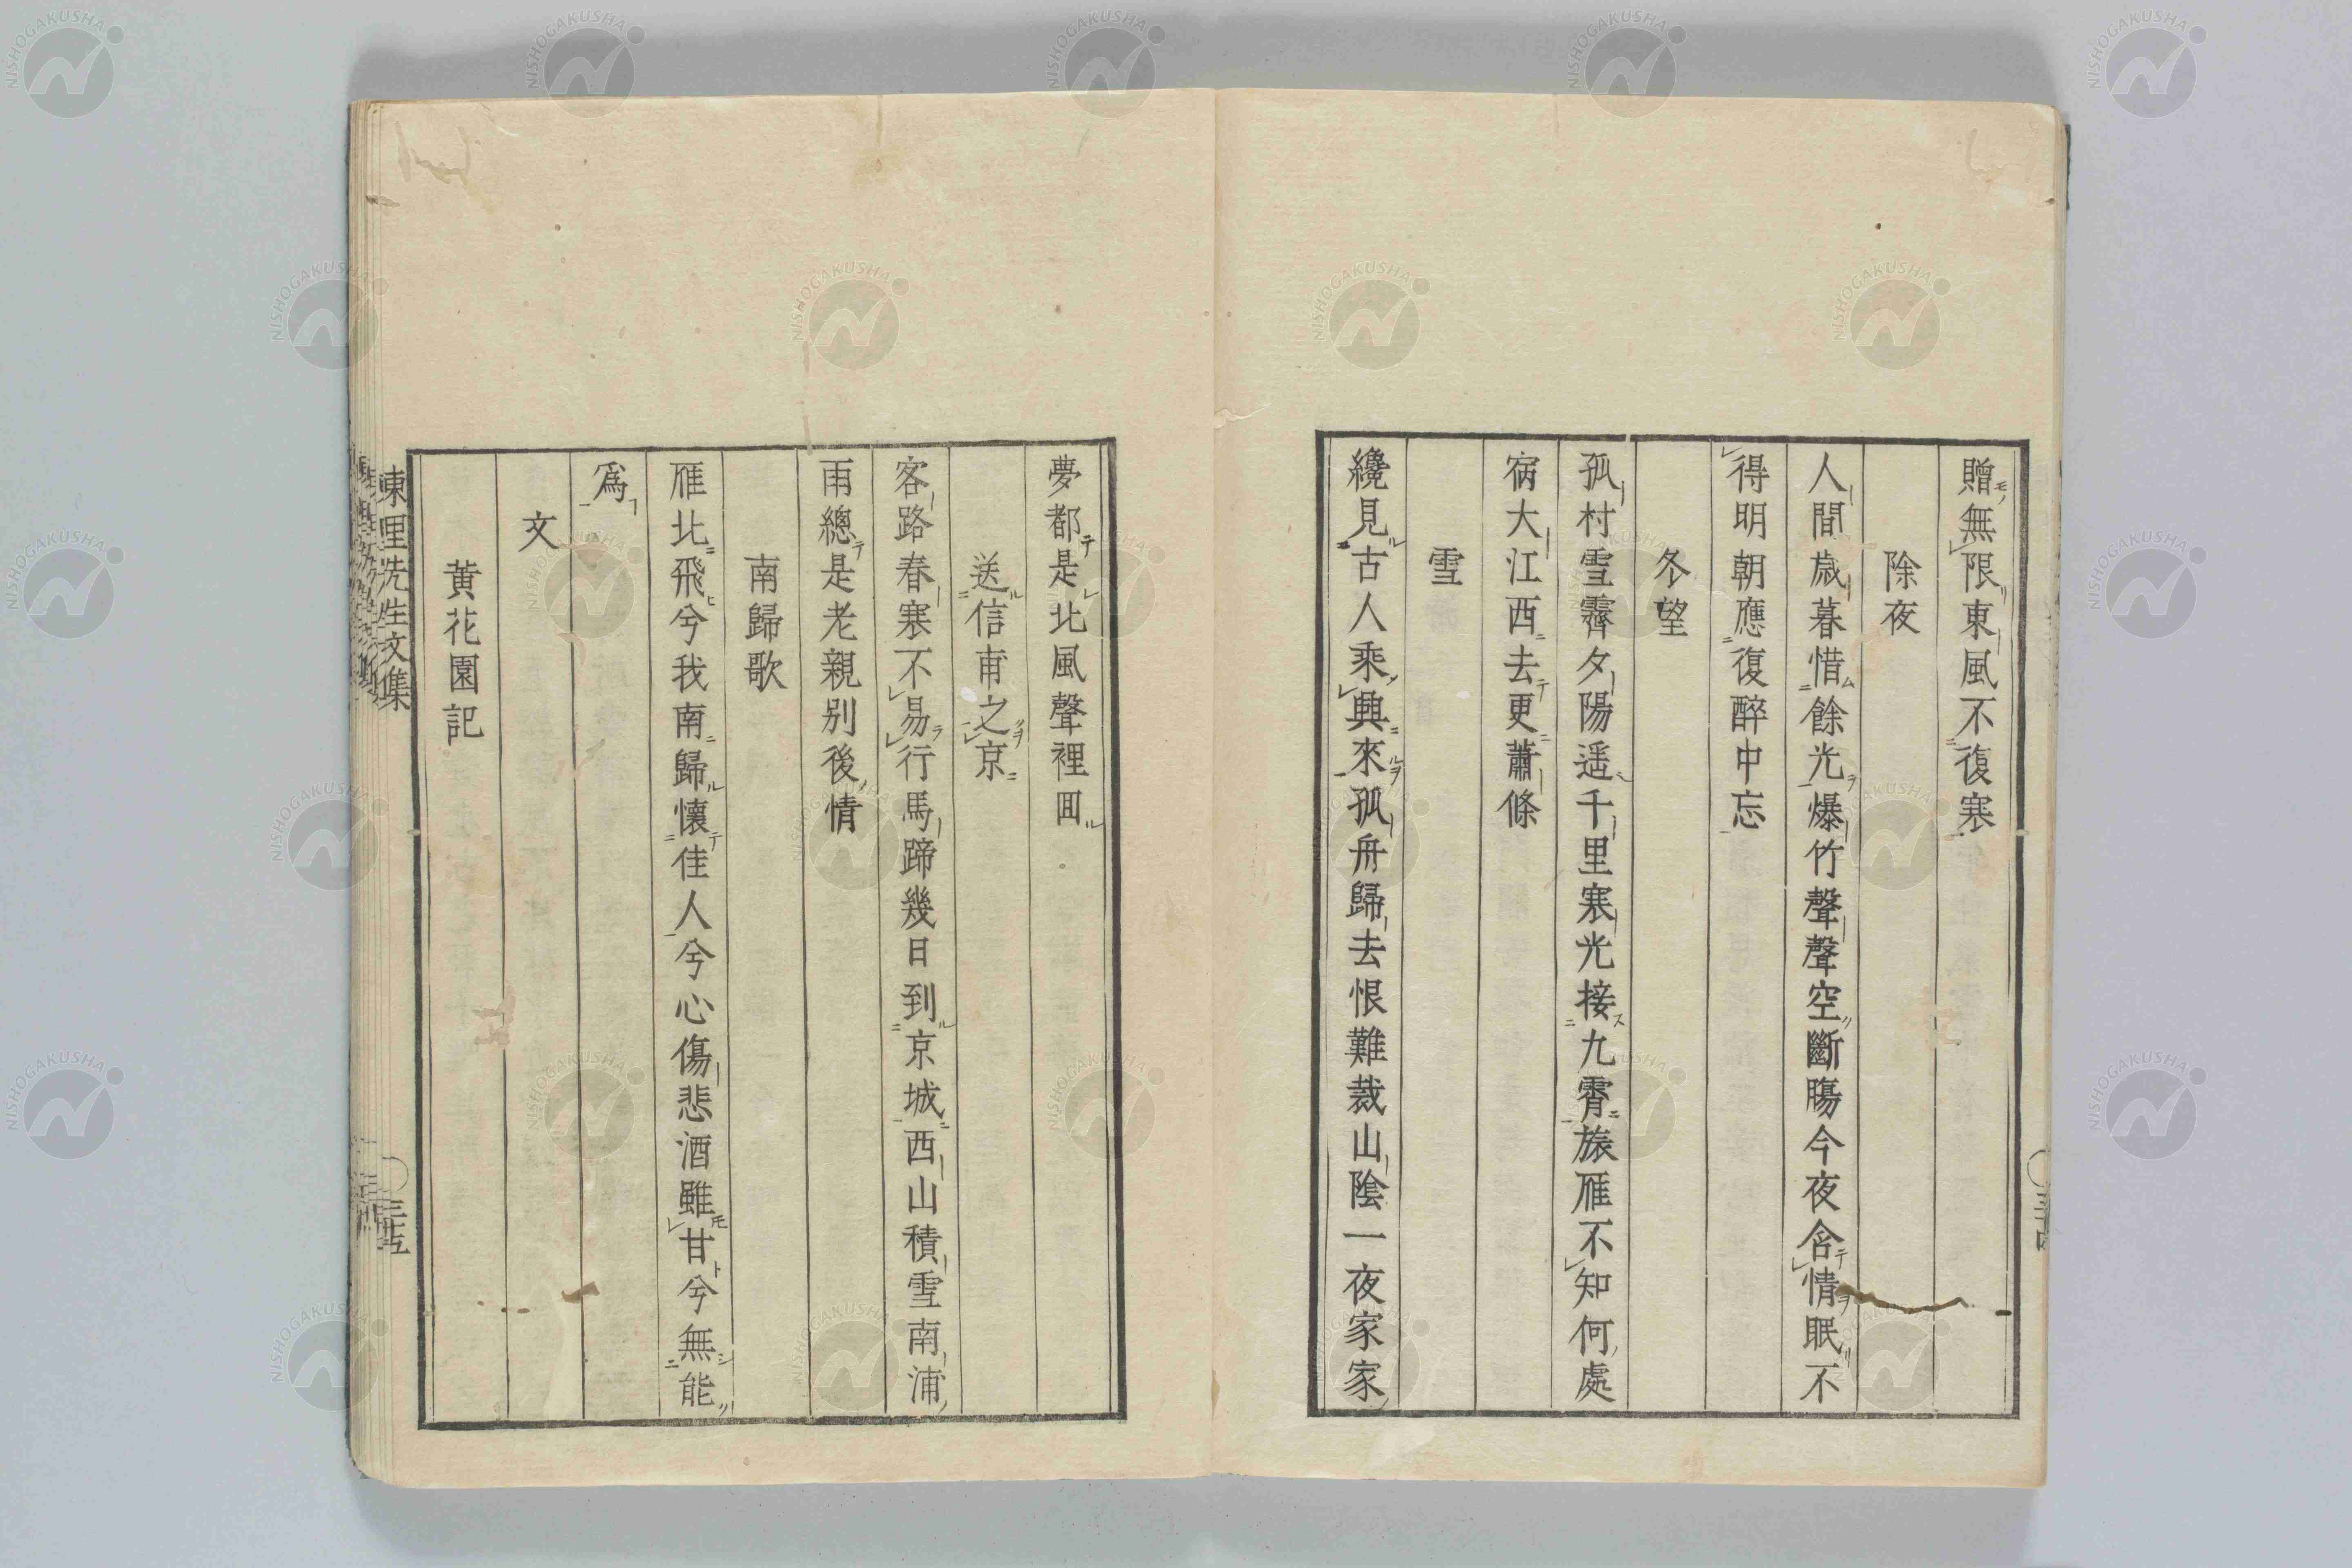 贈無限東風不復寒
除夜
人間歳暮惜餘光爆竹聲聲空斷膓今夜含情眠不
得明朝應復醉中忘
冬望
孤村雪霽夕陽遥千里寒光接九霄旅雁不知何處
宿大江西去更蕭條
雪
纔見古人乘興來孤舟歸去恨難裁山陰一夜家家
夢都是北風聲裡回
送信甫之京
客路春寒不易行馬蹄幾日到京城西山積雪南浦
雨總是老親別後情
南歸歌
雁北飛兮我南歸懷佳人兮心傷悲酒雖甘兮無能
爲
文
黄花園記
東里先生文集
三十五
NISHOGAKUSHA